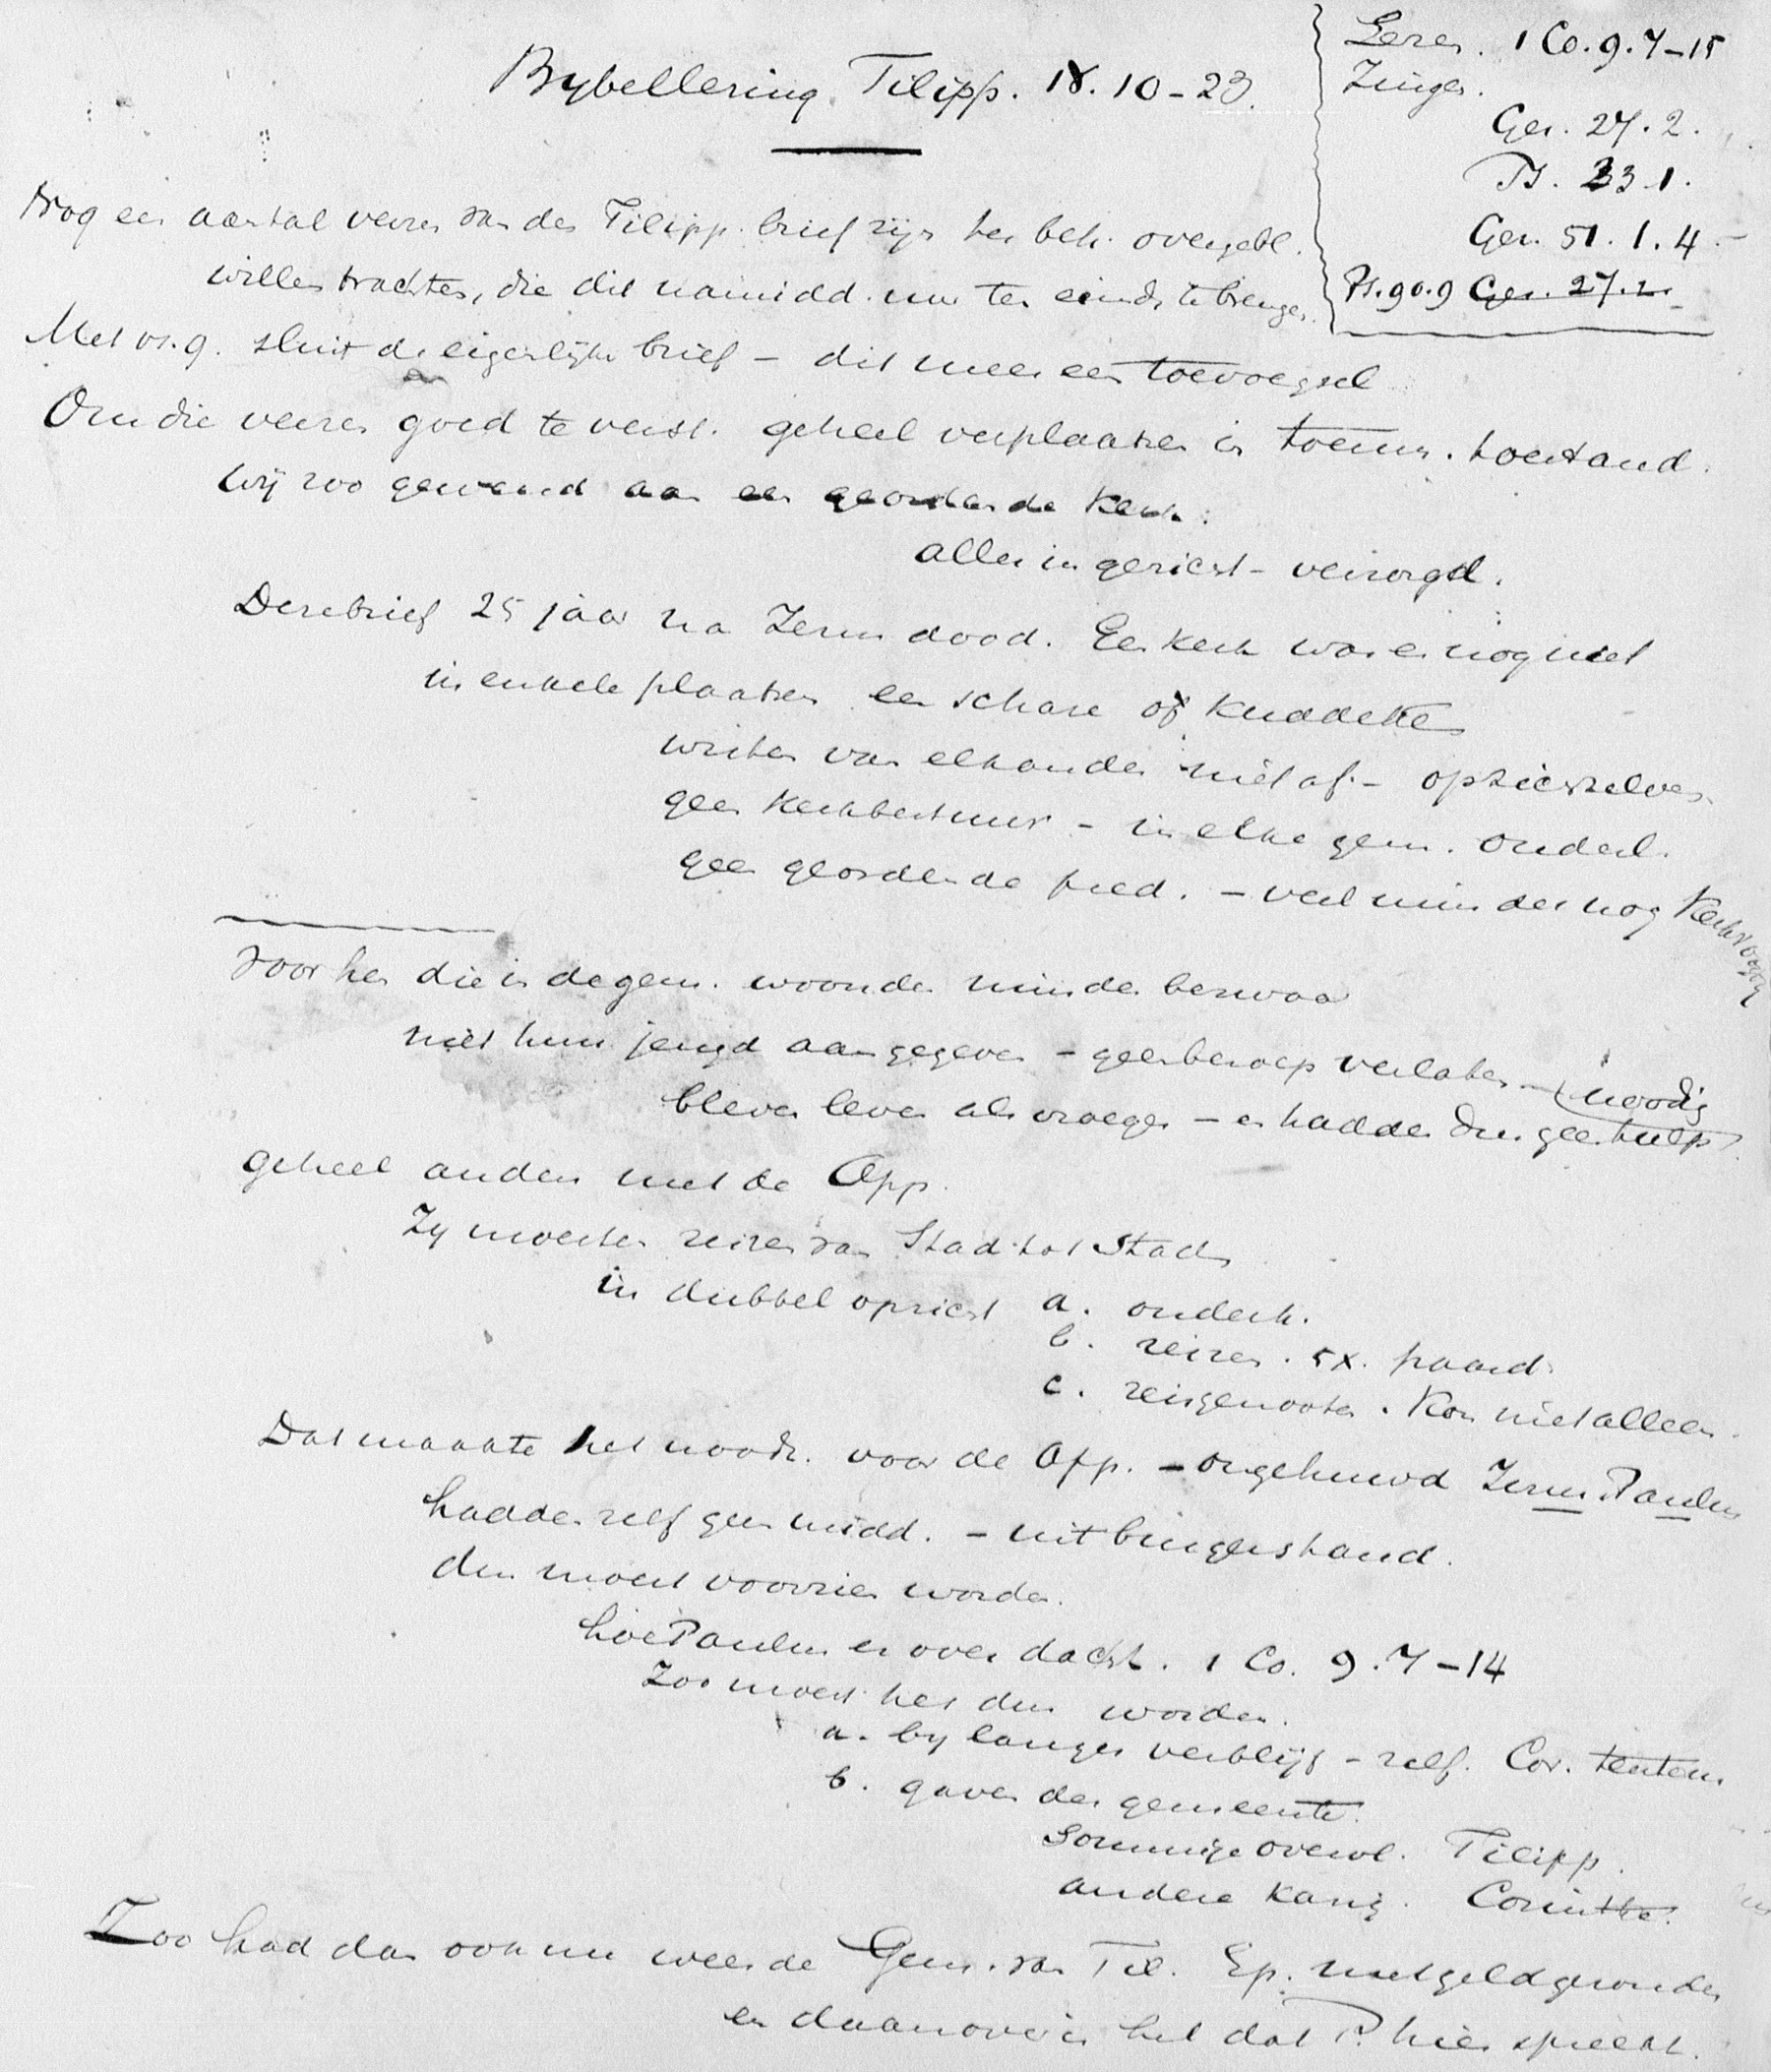 Bybellezing Filipp. IV. 10-23.
Lezen. 1 Co. 9. 7-15
Zingen.
Gez. 27. 2.
Ps. 33. 1.
Gez. 51. 1. 4.
Ps. 90. 9 Gez. 27. 2.
Nog een aantal verzen van den Filipp. brief zijn ter beh. overgebl.
willen trachten, die dit namidd. nu ten einde te brengen.
Met vs. 9. sluit de eigenlijke brief - dit meer een toevoegsel
Om die verzen goed te verst. geheel verplaatsen in toenm. toestand.
Wij zoo gewend aan een geordende Kerk.
alles ingericht - verzorgd.
Deze brief 25 jaar na Jezus dood. Een Kerk was er nog niet
in enkele plaatsen een schare of Kuddeke
wisten van elkander niet af - op zichzelven.
geen Kerkbestuur - in elke gem. ouderl.
geen geordende pred. - veel minder nog Kerkvoogdij
Voor hen die in de gem. woonden minder bezwaar
niet hun jeugd aan gegeven - geen beroep verlaten -
bleven leven als vroeger - en hadden dus geen hulp noodig
Geheel anders met de App.
Zy moesten reizen van Stad tot Stad
in dubbel opzicht a. onderh.
b. reizen. 5x. paard.
c. reisgenooten. Kon niet alleen.
Dat maakte het noodz. voor de App. - ongehuwd Jezus. Paulus
hadden zelf geen midd. - uit burgerstand.
dus moest voorzien worden.
hoe Paulus er over dacht. 1 Co. 9. 7-14
Zoo moest het dus worden.
a. by langer verblijf - zelf. Cor. tentenm.
b. gaven der gemeente.
Sommige overvl. Filipp.
andere karig. Corinthe.
Zoo had dan ook nu weer de Gem. van Fil. Ep. met geld gezonden
en daarover is het dat P. hier spreekt.